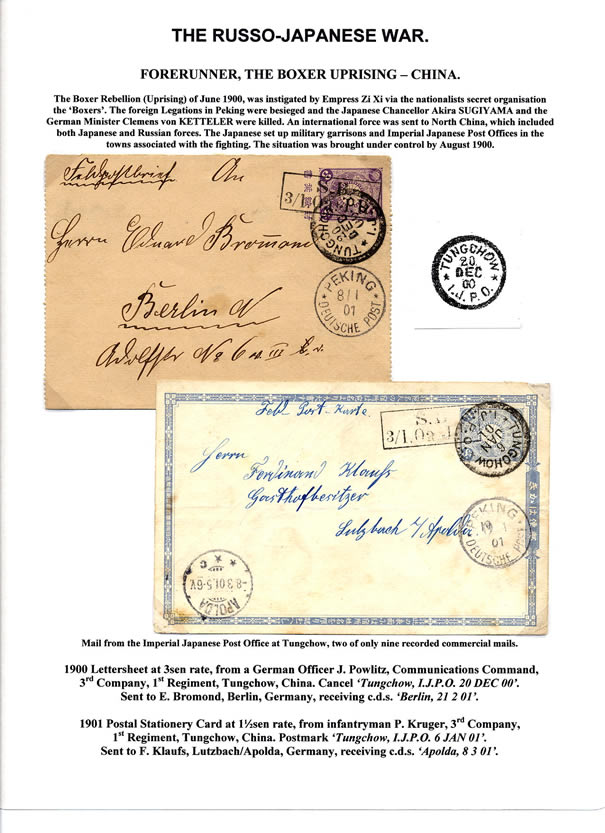 THE RUSSO-JAPANESE WAR.
FORERUNNER, THE BOXER UPRISING – CHINA.
The Boxer Rebellion (Uprising) of June 1900, was instigated by Empress Zi Xi via the nationalists secret organisation
the ‘Boxers’. The foreign Legations in Peking were besieged and the Japanese Chancellor Akira SUGIYAMA and the
German Minister Clemens von KETTELER were killed. An international force was sent to North China, which included
both Japanese and Russian forces. The Japanese set up military garrisons and Imperial Japanese Post Offices in the
towns associated with the fighting. The situation was brought under control by August 1900.
Feldpostbrief An
S.B.
3/1.Os
TUNGCHOW
Herrn Eduard Bromann
PEKING
8/1
01
DEUTSCHE POST
Berlin N
Adolfstr No 6
TUNGCHOW
20
DEC
00
I.J.P.O.
Feld Post-Karte
S.B.
3/1.Os
TUNGCHOW
6
JAN
01
Herrn
Ferdinand Klaufs
Gasthofbesitzer
Sulzbach b/Apolda
PEKING
01
DEUTSCHE POST
APOLDA
8.3.01.5-6V.
C
Mail from the Imperial Japanese Post Office at Tungchow, two of only nine recorded commercial mails.
1900 Lettersheet at 3sen rate, from a German Officer J. Powlitz, Communications Command,
3rd Company, 1st Regiment, Tungchow, China. Cancel ‘Tungchow, I.J.P.O. 20 DEC 00’.
Sent to E. Bromond, Berlin, Germany, receiving c.d.s. ‘Berlin, 21 2 01’.
1901 Postal Stationery Card at 1½sen rate, from infantryman P. Kruger, 3rd Company,
1st Regiment, Tungchow, China. Postmark ‘Tungchow, I.J.P.O. 6 JAN 01’.
Sent to F. Klaufs, Lutzbach/Apolda, Germany, receiving c.d.s. ‘Apolda, 8 3 01’.